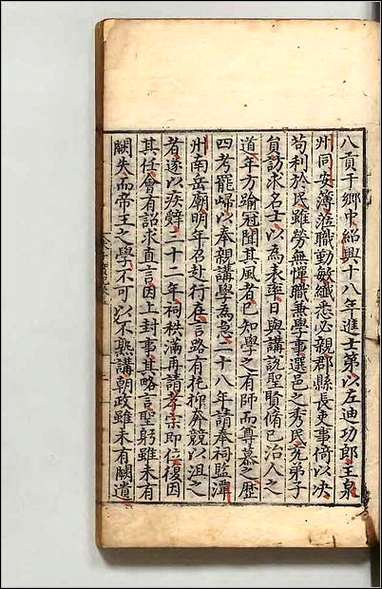 八貢于鄉中紹興十八年進士第以左迪功郎主泉
州同安簿涖職勤敏纖悉必親郡縣長吏事倚以决
苟利於民雖勞無憚職兼學事選邑之秀民充弟子
員訪求名士以為表率日與講說聖賢脩已治人之
道年方踰冠聞其風者已知學之有師而尊慕之歷
四考罷歸以奉親講學為急二十八年請奉祠監潭
州南岳廟明年召赴行在言路有托抑奔競以沮之
者遂以疾辭三十二年祠秩滿再請孝宗即位復因
其任會有詔求直言因上封事其略言聖躬雖未有
闕失而帝王之學不可以不熟講朝政雖未有闕遺